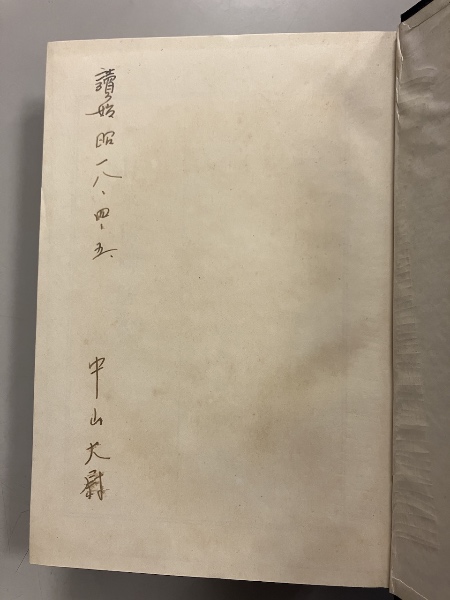 讀始昭一八、四、五、
中山大尉